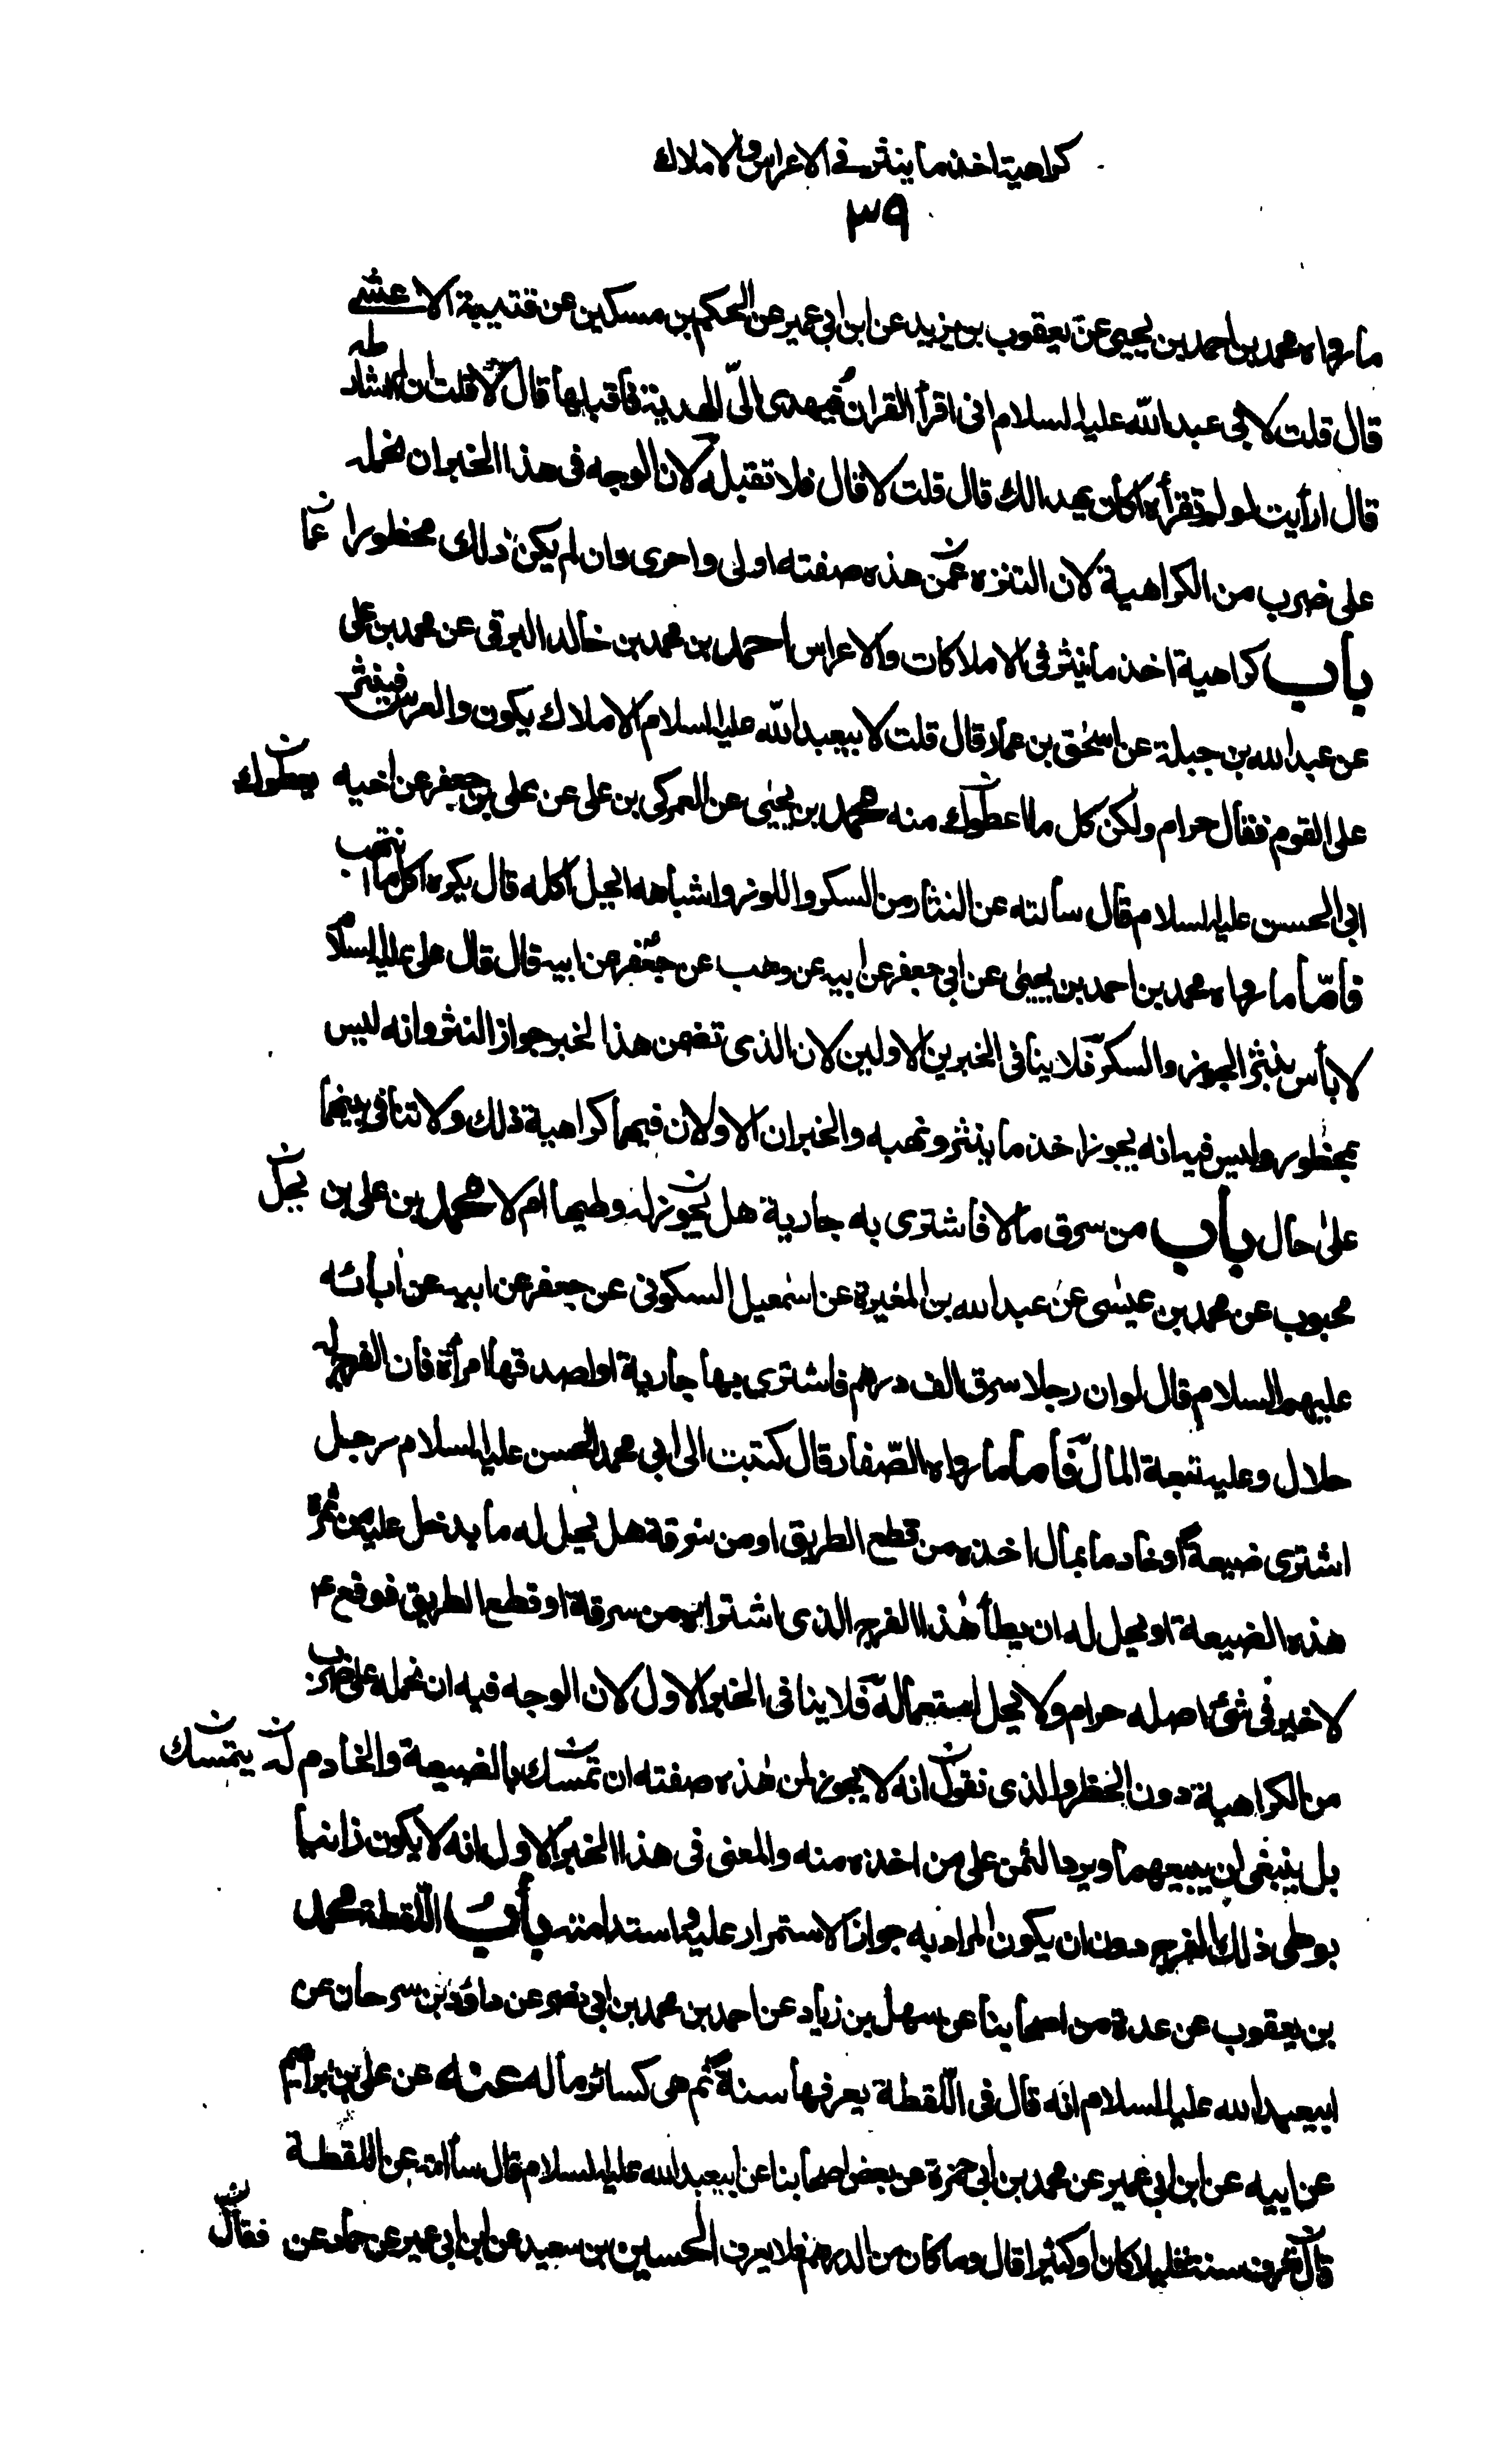 كراهية اخذ ما ينثر فى الاعراس والاملاك
٣٩
ما رواه محمد بن احمد بن يحيى عن يعقوب بن يزيد عن ابن ابى عمير عن الحكم بن مسكين عن قتيبة الاعشى
قال قلت لابى عبدالله عليه السلام انى اقرأ القران فيهدى الىّ الهدية فأقبلها قال لا قلت ان لم اشارطه
قال ارأيت لو لم تقرأه اكان يهدى لك قال قلت لا قال فلا تقبله لان الوجه فى هذا الخبر ان نحمله
على ضرب من الكراهية لان التنزه عمّن هذه صفته اولى واحرى وان لم يكن ذلك محظورا عما
باب كراهية اخذ ما ينثر فى الاملاكات والاعراس احمد بن محمد بن خالد البرقى عن محمد بن على
عن عبد الله بن جبلة عن اسحٰق بن عمار قال قلت لابيعبدالله عليه السلام الاملاك يكون والعرس فينثر
على القوم فقال حرام ولكن كل ما اعطوك منه محمد بن يحيى عن العمركى بن على عن على بن جعفر عن اخيه يعطوك
ابى الحسن عليه السلام قال سألته عن النثار من السكر واللوز واشباهه ايحل اكله قال يكره اكل ما انتهب
فأمّا ما رواه محمد بن احمد بن يحيى عن ابى جعفر عن ابيه عن وهب عن جعفر عن ابيه قال قال على عليه السلام
لا بأس بنثر الجوز والسكر فلا ينافى الخبرين الاولين لان الذى تضمن هذا الخبر جواز النثر وانه ليس
بمحظور وليس فيه انه يجوز اخذ ما ينثر ونهبه والخبران الاولان فيهما كراهية ذلك ولا تنافى بينهما
على حال باب من سرق مالا فاشترى به جارية هل يجوز له وطيها ام لا محمد بن على بن يحل
محبوب عن محمد بن عيسٰى عن عبد الله بن المغيرة عن اسمعيل السكونى عن جعفر عن ابيه عن اٰبائه
عليهم السلام قال لو ان رجلا سرق الف درهم فاشترى بها جارية او اصدقها امرأة فان الفرج له
حلال وعليه تبعة المال فأما ما رواه الصّفار قال كتبت الى ابى محمد الحسن عليه السلام رجل
اشترى ضيعة او خادما بمال اخذه من قطع الطريق او من سرقة هل يحل له ما يدخل عليه من ثمرة
هذه الضيعة او يحل له ان يطأ هٰذا الفرج الذى اشتراه من سرقة او قطع الطريق فوقع ع
لا خير فى شئ اصله حرام ولا يحل استعماله فلا ينافى الخبر الاول لان الوجه فيه ان نحمله على ضرب
من الكراهية دون الحظر والذى نقول انه لا يجوز لمن هٰذه صفته ان تمسك بالضيعة والخادم له يتمسك
بل ينبغى ان يبيعهما ويرد الثمن على من اخذه منه والمعنى فى هذا الخبر الاول انه لا يكون زانيا
بوطى ذلك الفرج دون ان يكون المراد به جواز الاستمرار عليه واستدامته باب اللّقطة محمد
بن يعقوب عن عدة من اصحابنا عن سهل بن زياد عن احمد بن محمد بن ابى نصر عن داؤد بن سرحان عن
ابيعبدالله عليه السلام انه قال فى اللّقطة يعرفها سنة ثم هى كسائر ماله عنه عن على بن ابراهيم
عن ابيه عن ابن ابى عمير عن محمد بن ابى حمزة عن بعض اصحابنا عن ابيعبدالله عليه السلام قال سألته عن اللقطة
قال تعرف سنة قليلا كان او كثيرا قال وما كان من دون الدرهم فلا يعرف الحسين بن سعيد عن ابن ابى عمير عن حماد عن فقال